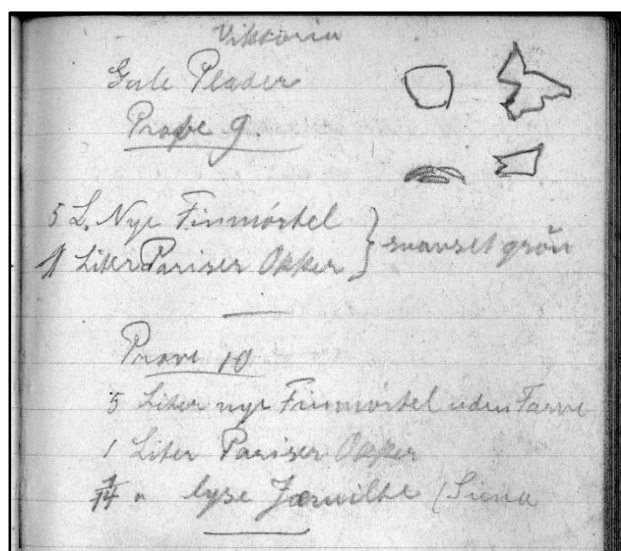 Viktoria
Gule Plader
Prøve 9.
5 L. Nye Finmörtel
1 Liter Pariser Okker } svanset grön
Prøve 10
5 Liter nye Finmörtel uden Farve
1 Liter Pariser Okker
1/14 " lyse Jærnvilke (Siena